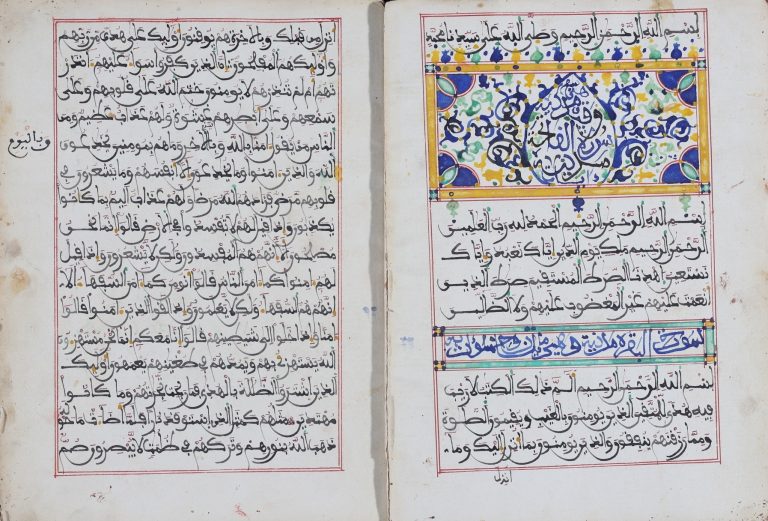 بسم الله الرحمن الرحيم وصلى الله على سيدنا محمد
سورة الفاتحة
بسم الله الرحمن الرحيم الحمد لله رب العلمين
الرحمن الرحيم ملك يوم الدين اياك نعبد واياك
نستعين اهدنا الصرط المستقيم صرط الذين
انعمت عليهم غير المغضوب عليهم ولا الضالين
سورة البقرة مدنية وهي
بسم الله الرحمن الرحيم الم ذلك الكتب لا ريب
فيه هدى للمتقين الذين يومنون بالغيب ويقيمون الصلوة
ومما رزقنهم ينفقون والذين يومنون بما انزل اليك وما
انزل
انزل من قبلك وبالاخرة هم يوقنون اوليك على هدى من ربهم
واوليك هم المفلحون ان الذين كفروا سواء عليهم ءانذر
تهم ام لم تنذرهم لا يومنون ختم الله على قلوبهم وعلى
سمعهم وعلى ابصرهم غشوة ولهم عذاب عظيم ومن
الناس من يقول امنا بالله وبالاخرة وما هم بمومنين يخدعون
وباليوم
الله والذين امنوا وما يخدعون الا انفسهم وما يشعرون في
قلوبهم مرض فزادهم الله مرضا ولهم عذاب اليم بما كانوا
يكذبون واذا قيل لهم لا تفسدوا في الارض قالوا انما نحن
مصلحون الا انهم هم المفسدون ولكن لا يشعرون واذا قيل
لهم امنوا كما امن الناس قالوا انومن كما امن السفهاء الا
انهم هم السفهاء ولكن لا يعلمون واذا لقوا الذين امنوا قالوا
امنا واذا خلوا الى شيطينهم قالوا انا معكم انما نحن مستهزءون
الله يستهزئ بهم ويمدهم في طغينهم يعمهون اوليك
الذين اشتروا الضللة بالهدى فما ربحت تجرتهم وما كانوا
مهتدين مثلهم كمثل الذي استوقد نارا فلما اضاءت ما حوله
ذهب الله بنورهم وتركهم في ظلمت لا يبصرون صم